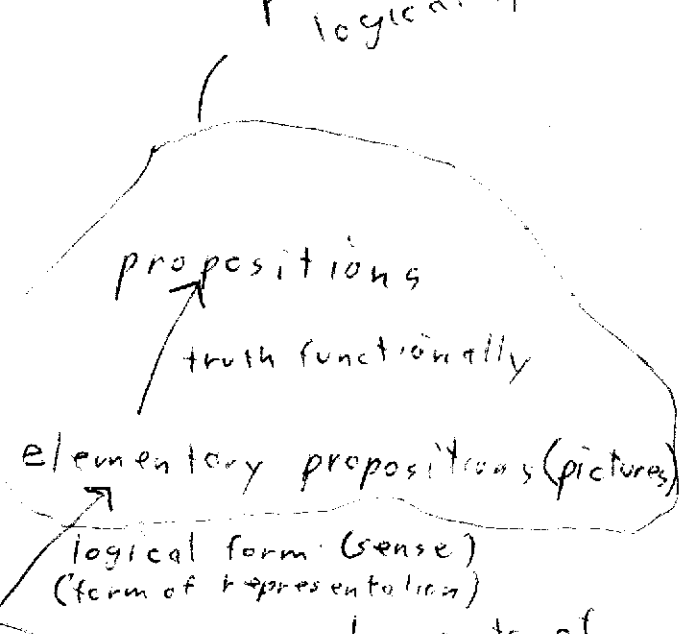 logical
propositions
truth functionally
elementary propositions (pictures)
logical form (sense)
(form of representation)
of